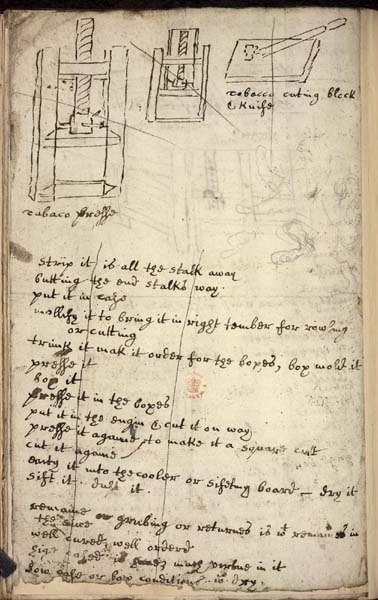 tobacco cuting block
& Knife
tobaco presse
strip it is all the stalk away
butting the end stalks way
put it in caso
mollify it to bring it in right tember for rowling
or cutting
trimk it mak it order for the boxes, box mold it
presse it
box it
presse it in the boxes
put it in the engin & cut it on way
presse it againe to make it a square cutt
cut it againe
cary it into the cooler or sifting board — dry it
sift it . dust it .
remaine or grubing or returnes is wt remaines in
the sive
well cured, well orderd
virtue in it
low case or box condition is dry.